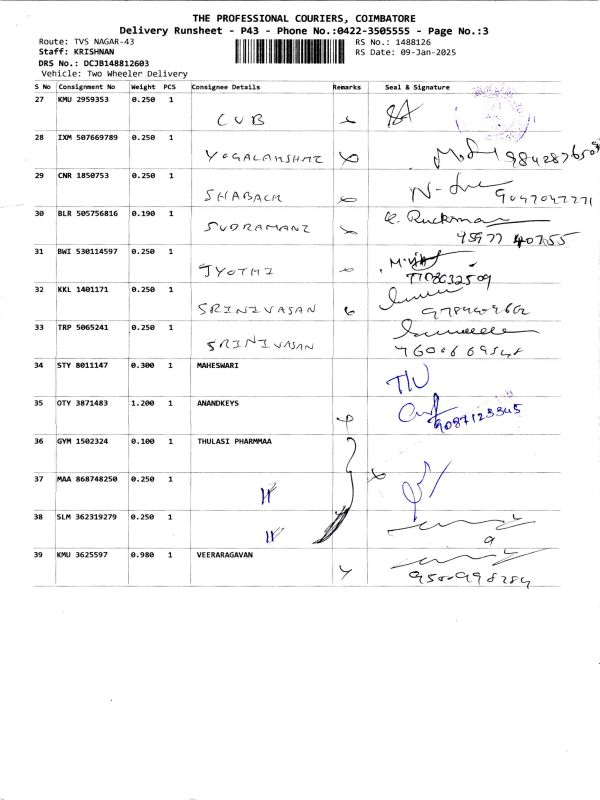 THE PROFESSIONAL COURIERS, COIMBATORE
Delivery Runsheet - P43 - Phone No.:0422-3505555 - Page No.:3
Route: TVS NAGAR-43 RS No.: 1488126
Staff: KRISHNAN RS Date: 09-Jan-2025
DRS No.: DCJB148812603
Vehicle: Two Wheeler Delivery
S No Consignment No Weight PCS Consignee Details Remarks Seal & Signature
27 KMU 2959353 0.250 1
CUB
28 IXM 507669789 0.250 1
YOGALAKSHMI
29 CNR 1850753 0.250 1
SHABACK
30 BLR 505756816 0.190 1
SUDRAMANI
R. Ruckman
31 BWI 530114597 0.250 1
JYOTHI
7708632509
32 KKL 1401171 0.250 1
SRINIVASAN
33 TRP 5065241 0.250 1
SRINIVASAN
34 STY 8011147 0.300 1 MAHESWARI
35 OTY 3871483 1.200 1 ANANDKEYS
9087123345
36 GYM 1502324 0.100 1 THULASI PHARMMAA
37 MAA 868748250 0.250 1
38 SLM 362319279 0.250 1
39 KMU 3625597 0.980 1 VEERARAGAVAN